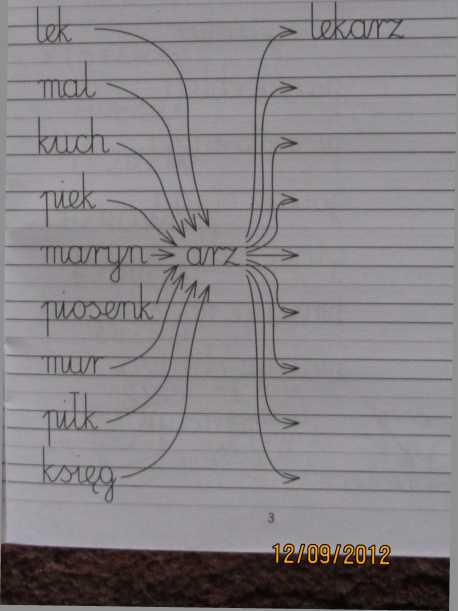 lek lekarz
mal
kuch
piek
maryn arz
piosenk
mur
piłk
księg
3
12/09/2012